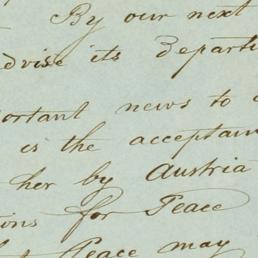 By our next
advise its Departu
ortant news to
is the acceptan
her by Austria
ions for Peace
Peace may